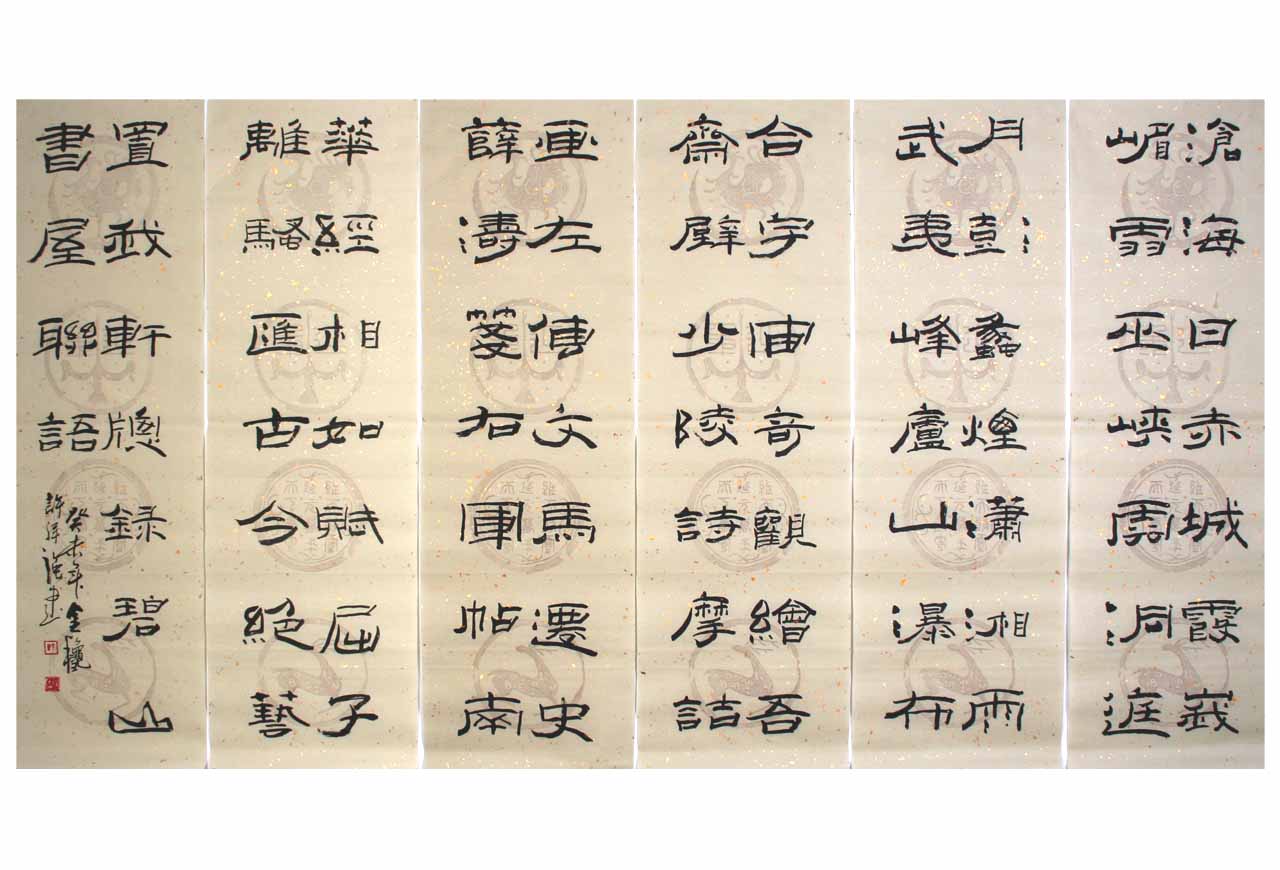 滄海日赤城霞峩
嵋雪巫峽雲洞庭
月彭蠡煙瀟湘雨
武夷峰廬山瀑布
合宇宙奇觀繪吾
齋壁少陵詩摩詰
畫左傳文馬遷史
薛濤箋右軍帖南
華經相如賦屈子
離騷匯古今絕藝
置我軒牕録碧山
書屋聯語
癸未年金
許洋